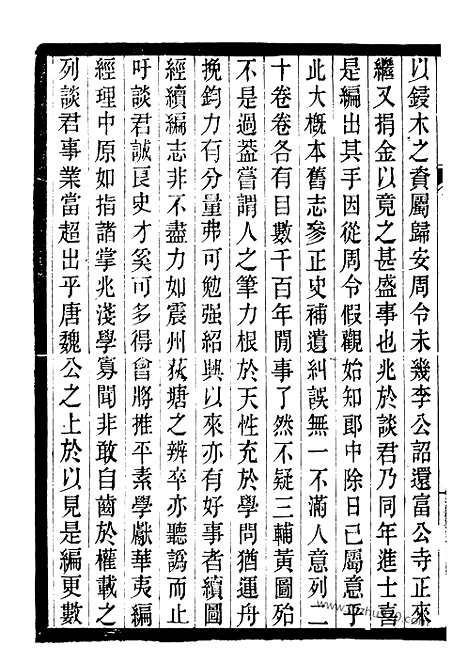 以鋟木之資屬歸安周令未幾李公詔還富公寺正來
繼又捐金以竟之甚盛事也兆於談君乃同年進士喜
是編出其手因從周令假觀始知郎中除日已屬意乎
此大概本舊志參正史補遺糾誤無一不滿人意列二
十卷卷各有目數千百年閒事了然不疑三輔黃圖殆
不是過葢嘗謂人之筆力根於天性充於學問猶運舟
挽鈞力有分量弗可勉强紹興以來亦有好事者續圖
經續編志非不盡力如震州荻塘之辨卒亦聽譌而止
吁談君誠良史才奚可多得會將推平素學獻華夷編
經理中原如指諸掌兆淺學寡聞非敢自齒於權載之
列談君事業當超出乎唐魏公之上於以見是編更數